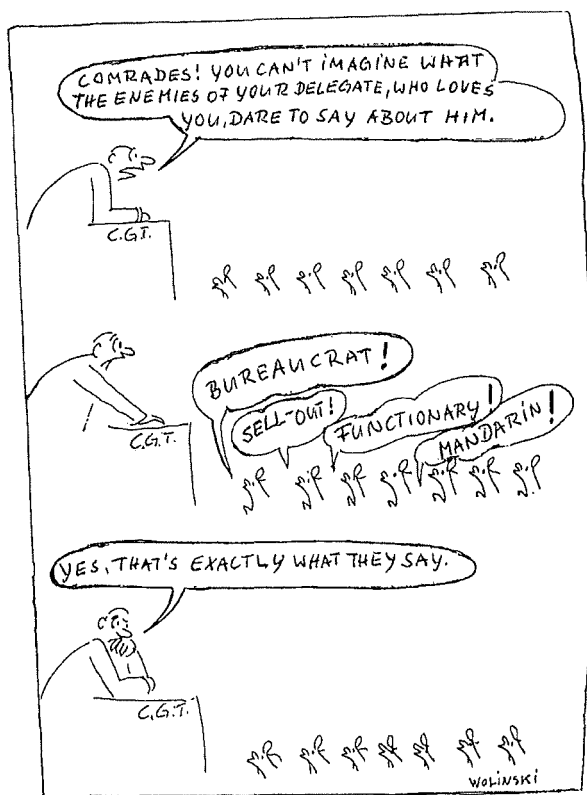 COMRADES! YOU CAN'T IMAGINE WHAT
THE ENEMIES OF YOUR DELEGATE, WHO LOVES
YOU, DARE TO SAY ABOUT HIM.
C.G.T.
BUREAUCRAT!
SELL-OUT!
FUNCTIONARY!
MANDARIN!
C.G.T.
YES, THAT'S EXACTLY WHAT THEY SAY.
C.G.T.
WOLINSKI